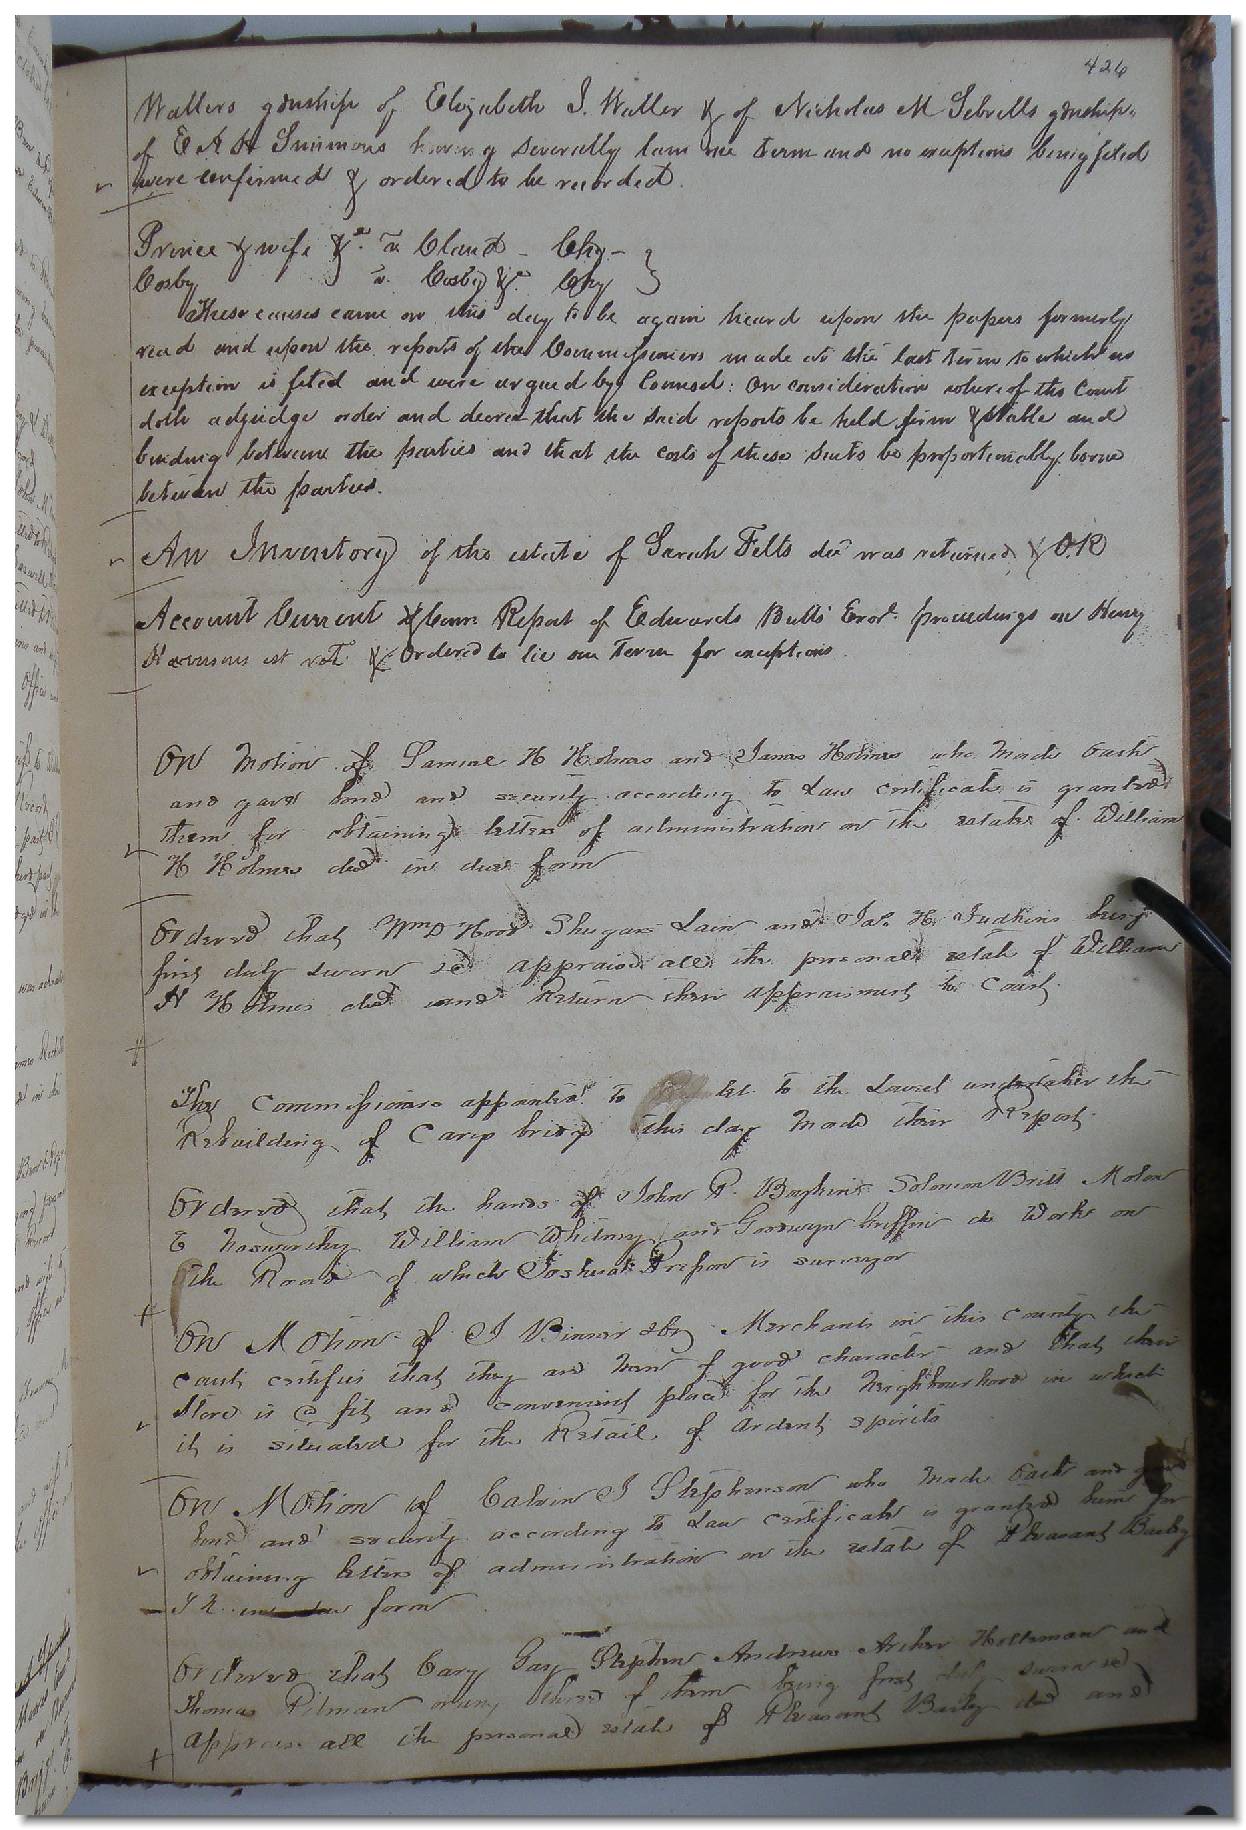 426
Wallers gdnship of Elizabeth J. Waller & of Nicholas M Sebrells gdnship
of E A H Simmons having severally lain one term and no exceptions being filed
were confirmed & ordered to be recorded.
Prince & wife &c. vs Claud - Chy -
Cosby vs. Cosby &c. Chy
These causes came on this day to be again heard upon the papers formerly
read and upon the reports of the Commissioners made at the last term to which no
exception is filed and were argued by Counsel: On consideration whereof the Court
doth adjudge order and decree that the said reports be held firm & stable and
binding between the parties and that the costs of these suits be proportionably borne
between the parties.
An Inventory of the estate of Sarah Felts decd was returned & O.R
Account Current & Comrs Report of Edwards Butts Exor. proceedings on Henry
Harrisons est retd & Ordered to lie one term for exceptions.
On Motion of Samuel H Holmes and James Holmes who made Oath
and gave bond and security according to Law certificate is granted
them for obtaining letters of administration on the estate of William
H Holmes decd in due form
Ordered that Wm D Hood Shugars Lain and Jas. H. Judkins being
first duly sworn do appraise all the personal estate of William
H Holmes decd and Return their appraisment to Court.
The Commissioners appointed to let to the Lowest undertaker the
Rebuilding of Carys bridge this day made their Report.
Ordered that the hands of John P. Boykin Solomon Britt Molon
E Nosworthy William Whitney and Goodwyn Griffin do Work on
the Road of which Joshua Pretlow is surveyor
On Motion of J Merchants in this county the
court certifies that they are men of good character and that their
store is a fit and convenient place for the Neighbourhood in which
it is situated for the Retail of Ardent spirits
On Motion of Calvin J Stephenson who made Oath and gave
bond and security according to Law certificate is granted him for
obtaining letters of administration on the estate of Pleasant Bailey
form
Ordered that Cary Gay Stephen Andrews Archer Holleman and
Thomas Pitman or any three of them being first duly sworn do
appraise all the personal estate of Pleasant Bailey decd and